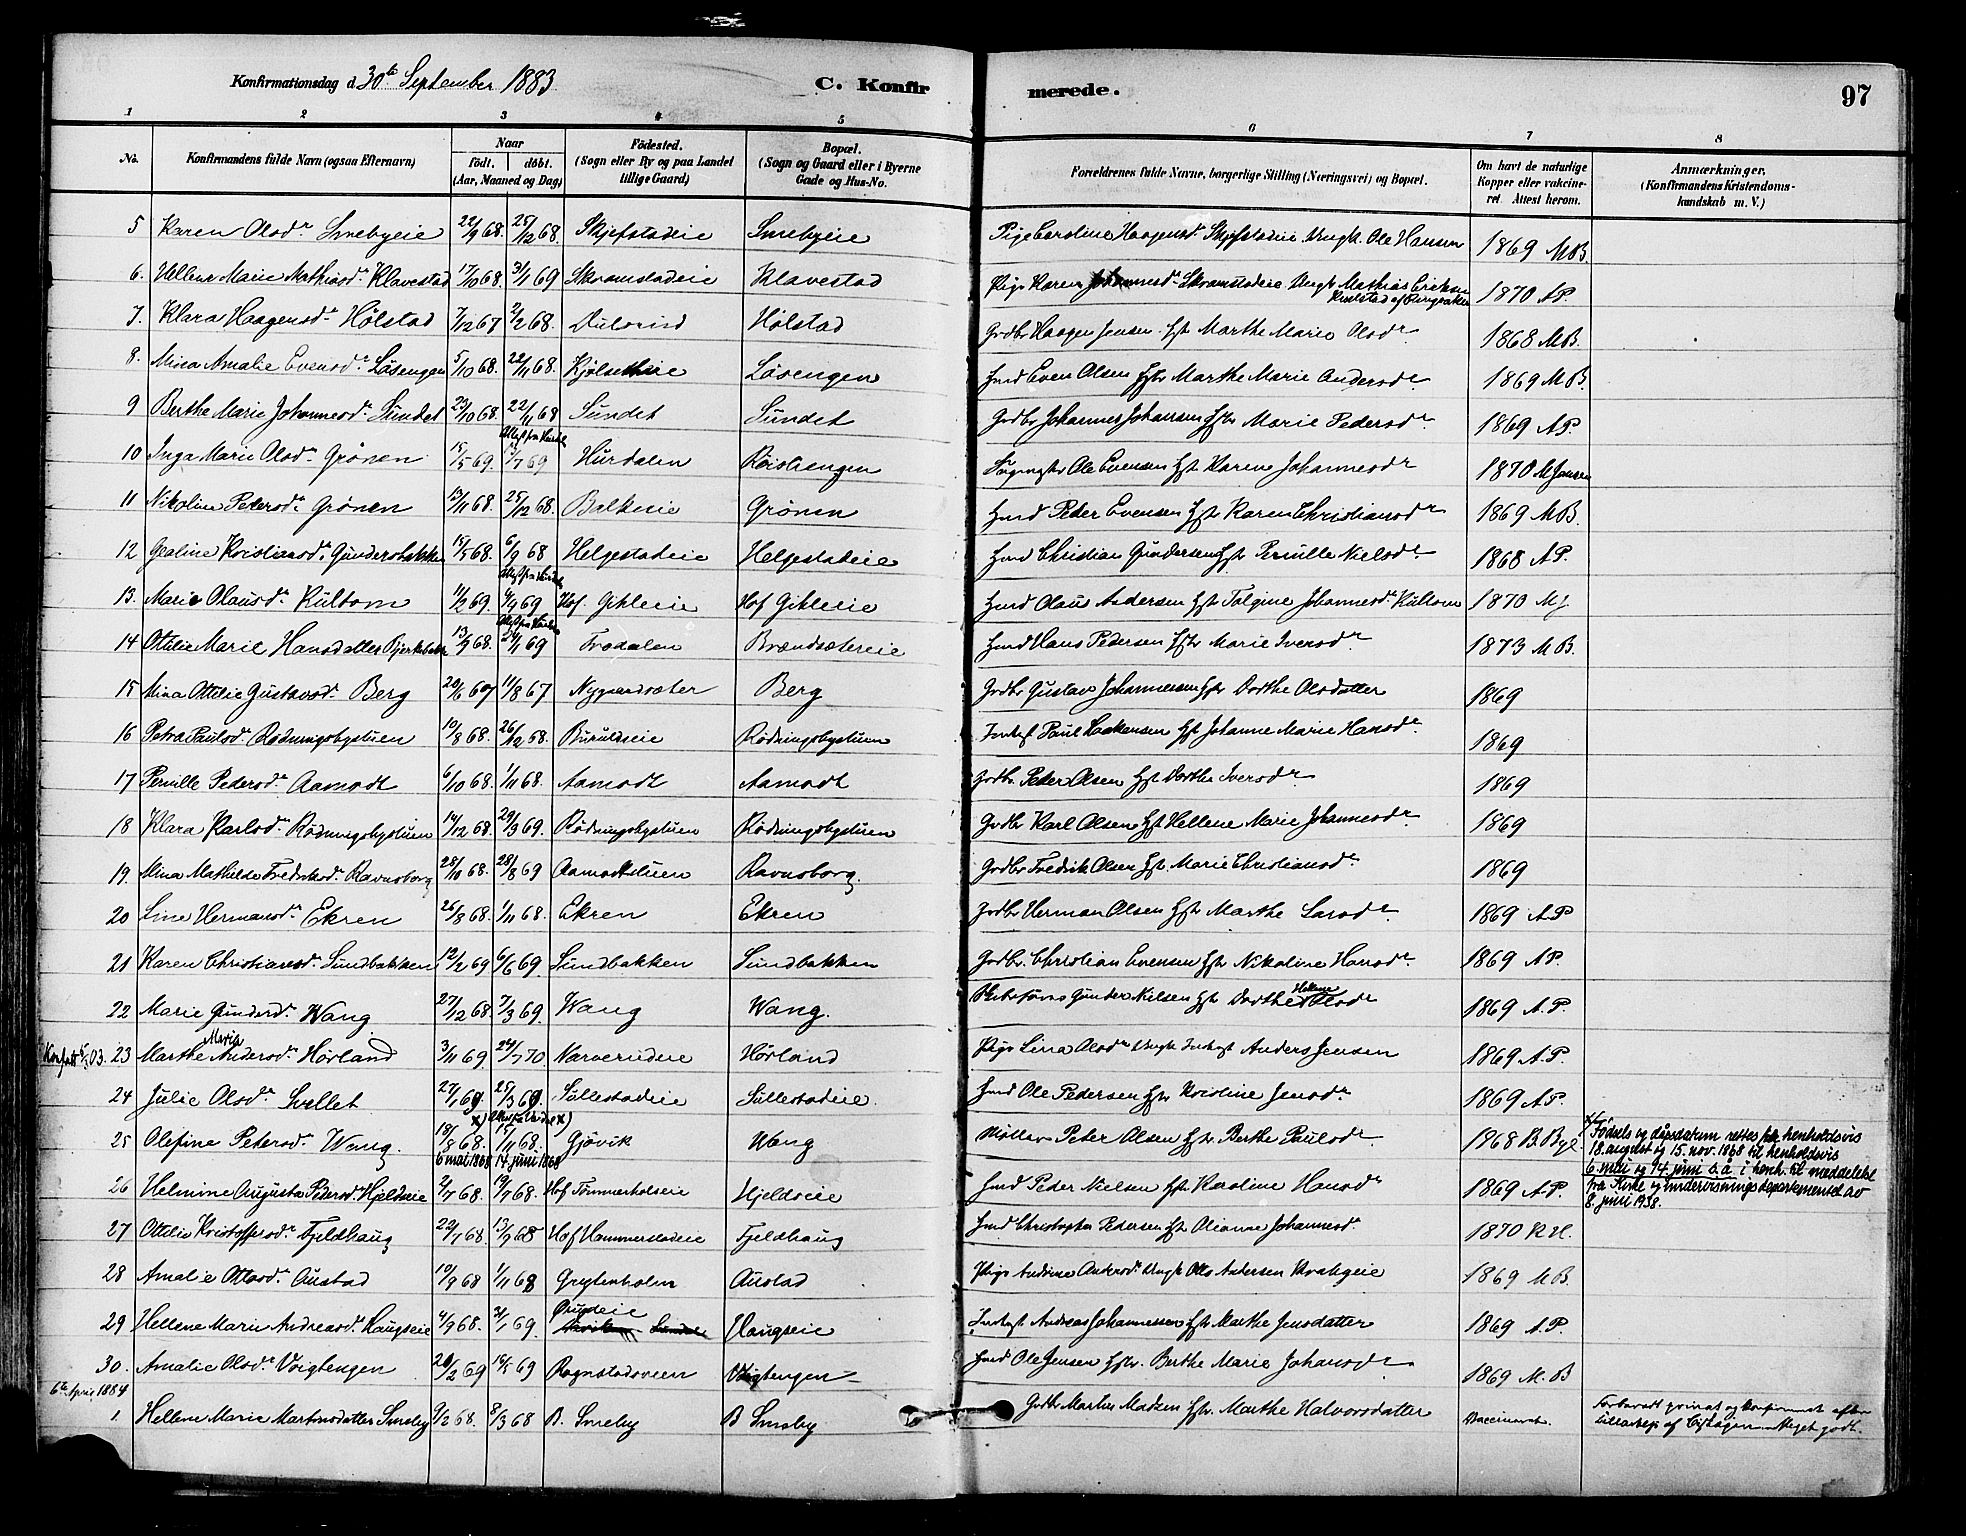 Konfirmationsdag d. 30te September 1883
C. Konfir
merede.
97
1 2 3 4 5 6 7 8
No.
Konfirmandens fulde Navn (ogsaa Efternavn)
Naar
født. døbt.
(Aar, Maaned og Dag)
Fødested.
(Sogn eller By og paa Landet
tillige Gaard)
Bopæl.
(Sogn og Gaard eller i Byerne
Gade og Hus-No.
Forældrenes fulde Navne, borgerlige Stilling (Næringsvei) og Bopæl.
Om havt de naturlige
Kopper eller vakcine-
ret. Attest herom.
Anmærkninger.
(Konfirmandens Kristendoms-
kundskab m. V.)
5 Karen Olsdr Smebyeie 22/9 68. 25/12 68. Skjefstadeie Smebyeie Pige Caroline Haagensdr Skjefstadeie Ungk. Ole Hansen 1869 M.B.
6. Hellene Marie Mathiasdr Klavestad 17/10 68. 3/1 69 Skramstadeie Klavestad Pige Karen Johannesdr Skramstadeie Ungk Mathias Eriksen 1870 A.P.
7. Klara Haagensdr Hølstad 7/12 67 2/2 68. Hølstad Grdbr Haagen Jensen Hst Marthe Marie Olsdr 1868 M.B.
8. Mina Amalie Evensdr Løsengen 5/10 68. 22/11 68. Kjølsetheie Løsengen Hmd Even Olsen Hstr Marthe Marie Andersdr 1869 M.B.
9 Berthe Marie Johannesdr Sundet 23/10 68. 22/11 68 Sundet Sundet Grdbr Johannes Johansen Hstr Marie Pedersdr 1869 A.P.
Attest fra Hurdal
10 Inga Marie Olsdr Grønen 15/5 69. /7 69 Hurdalen Røistengen Ole Evensen Hst Karen Johannesdr 1870 M Jansen
11 Nikoline Petersdr Grønen 13/11 68. 25/12 68. Balkeeie Grønen Hmd Peder Evensen Hst Karen Christiansdr 1869 M.B.
12 Gealine Kristiansdr Gundersbakken 15/5 68. 6/9 68 Helgestadeie Helgestadeie Hmd Christian Gundersen Hst Pernille Nielsdr 1868 A.P.
13. Marie Olausdr Kultom 11/2 69. 4/4 69 Hof. Gihleeie Hof Gihleeie Hmd Olaus Andersen Hst Tolgine Johannesdr Kultom 1870 M.J
14 Ottilie Marie Hansdatter Bjerkebakke 13/9 68. /1 69 Trodalen Brændsætereie Hmd Hans Pedersen Hstr Marie Iversdr 1873 M.B.
15 Mina Ottilie Gustavsdr Berg 20/6 67 11/8 67 Nygaardsæter Berg Grdbr Gustav Johannesen Hstr Dorthe Olsdatter 1869
16 Petra Paulsdr Rødningsbystuen 10/8 68. 26/12 68. Burulseie Rødningsbystuen Inderst Paul Haakensen Hst Johanne Marie Hansdr 1869
17 Pernille Pedersdr Aamodt 6/10 68. 1/11 68. Aamodt Aamodt Grdbr. Peder Olsen Hst Dorthe Iversdr 1869
18 Klara Karlsdr Rødningsbystuen 14/12 68. 29/3 69. Rødningsbystuen Rødningsbystuen Grdbr Karl Olsen Hst Hellene Marie Johannesdr 1869
19. Mina Mathilde Fredriksdr Ravnsborg 28/10 68. 28/8 69 Aamodtstuen Ravnsborg. Grdbr Fredrik Olsen Hst. Marie Christiansdr 1869
20 Line Hermansdr Ekren 26/8 68. 1/11 68. Ekren Ekren Grdbr Herman Olsen Hstr Marthe Larsdr 1869 A.P
21 Karen Christiansdr Sundbakken 12/2 69 6/6 69. Sundbakken Sundbakken Grdbr. Christian Evensen Hstr Nikoline Hansdr 1869 A.P.
22 Marie Gundersdr Wang 27/12 68. 7/3 69. Wang Wang. Gunder Nielsen Hst Dorthe Hellene Olsdr 1869 A.P.
23 Marthe Maria Andersdr Hørland 3/11 69. 24/7 70. Narverudeie Hørland Pige Lina Olsdr Ungk Inderst Anders Jensen 1869 A.P.
24 Julie Olsdr Svellet 27/1 69 25/3 69. Sullestadeie Sullestadeie. Hmd Ole Pedersen Hstr Kristine Jensdr 1869 A.P.
25 Olefine Petersdr Wang. 18/8 68. 15/11 68. Gjøvik Wang Møller Peter Olsen Hst. Berthe Paulsdr 1868 B. Byl
6 mai 1868 14. juni 1868
x) Fødsels og dåpsdatum rettes fra henholdsvis
18. august og 15. nov. 1868 til henholdsvis
6 mai og 14 juni s.å. i henh. til meddelelse
fra Kirke og undervisningsdepartementet av
8. juni 1938.
26 Helmine Augusta Pedersdr Hjeldseie 2/7 68. 19/7 68. Hof Tømmerholseie Hjeldseie Hmd Peder Nielsen Hstr Karoline Hansdr 1869 A.P.
27 Ottilie Kristoffersdr Fjeldhaug 22/7 68. 13/9 68 Hof Hammerstadeie Fjeldhaug Hmd Christopher Pedersen Hst Oliane Johannesdr 1870 K.H.
28 Amalie Ottosdr Austad 19/9 68 1/11 68 Grytenholen Austad Pige Andrine Andersdr Ungk Otto Andersen 1869 M.B.
29 Hellene Marie Andreasdr Haugseie 4/9 68. 31/1 69. Haugseie Inderst Andreas Johannessen Hst Marthe Jensdatter 1869 A.P.
30. Amalie Olsdr Voigtengen 20/2 69 16/5 69 Rognstadsveen Voigtengen Hmd Ole Jensen Hstr. Berthe Marie Johansdr 1869 M.B
6te April 1884
1. Hellene Marie Martinsdatter Smeby 9/2 68. 8/3 68 B. Smeby B Smeby Grdbr Martin Madsen Hstr. Marthe Halvorsdatter Vaccineret.
Forberedt privat og konfirmeret efter
tilladelse af Biskopen. Meget godt.